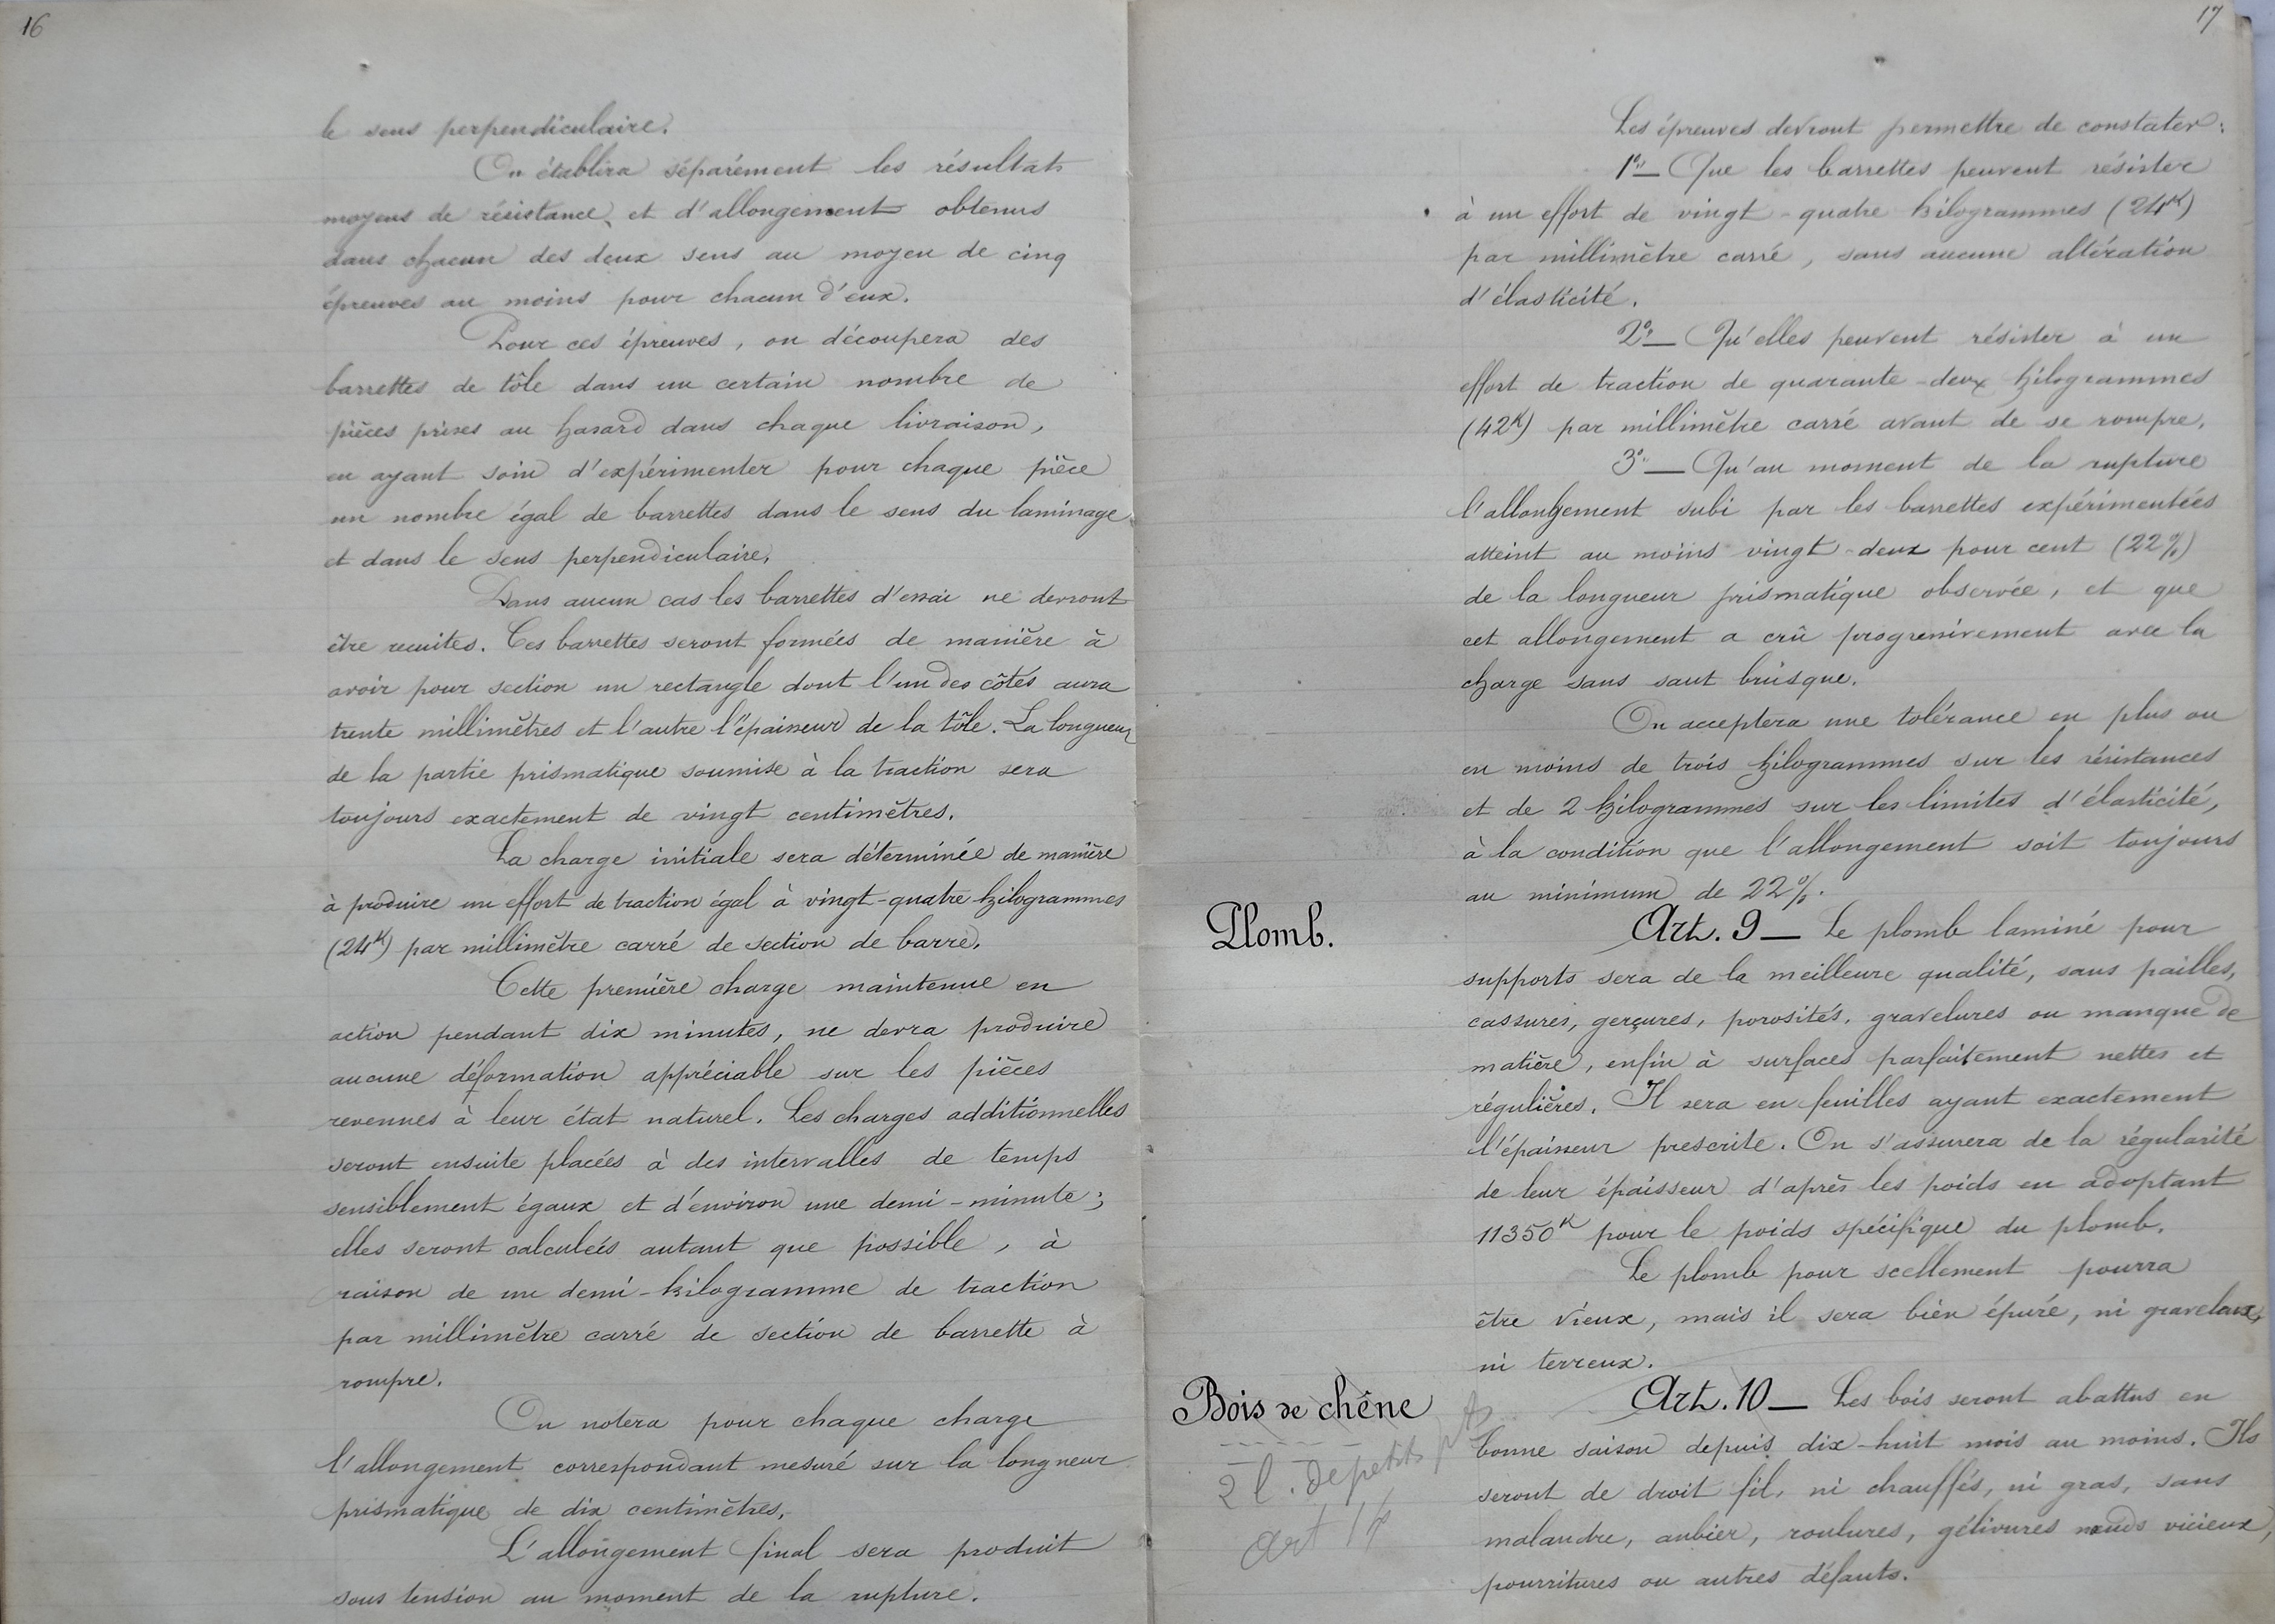 16
le sens perpendiculaire.
On établira séparément les résultats
moyens de résistance et d'allongement obtenus
dans chacun des deux sens au moyen de cinq
épreuves au moins pour chacun d'eux.
Pour ces épreuves, on découpera des
barrettes de tôle dans un certain nombre de
pièces prises au hasard dans chaque livraison,
en ayant soin d'expérimenter pour chaque pièce
un nombre égal de barrettes dans le sens du laminage
et dans le sens perpendiculaire.
Dans aucun cas les barrettes d'essai ne devront
être recuites. Ces barrettes seront formées de manière à
avoir pour section un rectangle dont l'un des côtés aura
trente millimètres et l'autre l'épaisseur de la tôle. La longueur
de la partie prismatique soumise à la traction sera
toujours exactement de vingt centimètres.
La charge initiale sera déterminée de manière
à produire un effort de traction égal à vingt-quatre kilogrammes
(24K) par millimètre carré de section de barre.
Cette première charge maintenue en
action pendant dix minutes, ne devra produire
aucune déformation appréciable sur les pièces
revenues à leur état naturel. Les charges additionnelles
seront ensuite placées à des intervalles de temps
sensiblement égaux et d'environ une demi-minute ;
elles seront calculées autant que possible, à
raison de un demi-kilogramme de traction
par millimètre carré de section de barrette à
rompre.
On notera pour chaque charge
l'allongement correspondant mesuré sur la longueur
prismatique de dix centimètres.
L'allongement final sera produit
sous tension au moment de la rupture.
17
Les épreuves devront permettre de constater :
1° — Que les barrettes peuvent résister
à un effort de vingt-quatre kilogrammes (24K)
par millimètre carré, sans aucune altération
d'élasticité.
2° — Qu'elles peuvent résister à un
effort de traction de quarante-deux kilogrammes
(42K) par millimètre carré avant de se rompre.
3° — Qu'au moment de la rupture
l'allongement subi par les barrettes expérimentées
atteint au moins vingt-deux pour cent (22%)
de la longueur prismatique observée, et que
cet allongement a crû progressivement avec la
charge sans saut brusque.
On acceptera une tolérance en plus ou
en moins de trois kilogrammes sur les résistances
et de 2 kilogrammes sur les limites d'élasticité,
à la condition que l'allongement soit toujours
au minimum de 22%.
Plomb.
Art. 9 — Le plomb laminé pour
supports sera de la meilleure qualité, sans pailles,
cassures, gerçures, porosités, gravelures ou manque de
matière, enfin à surfaces parfaitement nettes et
régulières. Il sera en feuilles ayant exactement
l'épaisseur prescrite. On s'assurera de la régularité
de leur épaisseur d'après les poids en adoptant
11350K pour le poids spécifique du plomb.
Le plomb pour scellement pourra
être vieux, mais il sera bien épuré, ni graveleux,
ni terreux.
Bois de chêne
Art. 10 — Les bois seront abattus en
bonne saison depuis dix-huit mois au moins. Ils
seront de droit fil, ni chauffés, ni gras, sans
malandre, aubier, roulures, gélivures nœuds vicieux,
pourritures ou autres défauts.
2 l. de petits
art